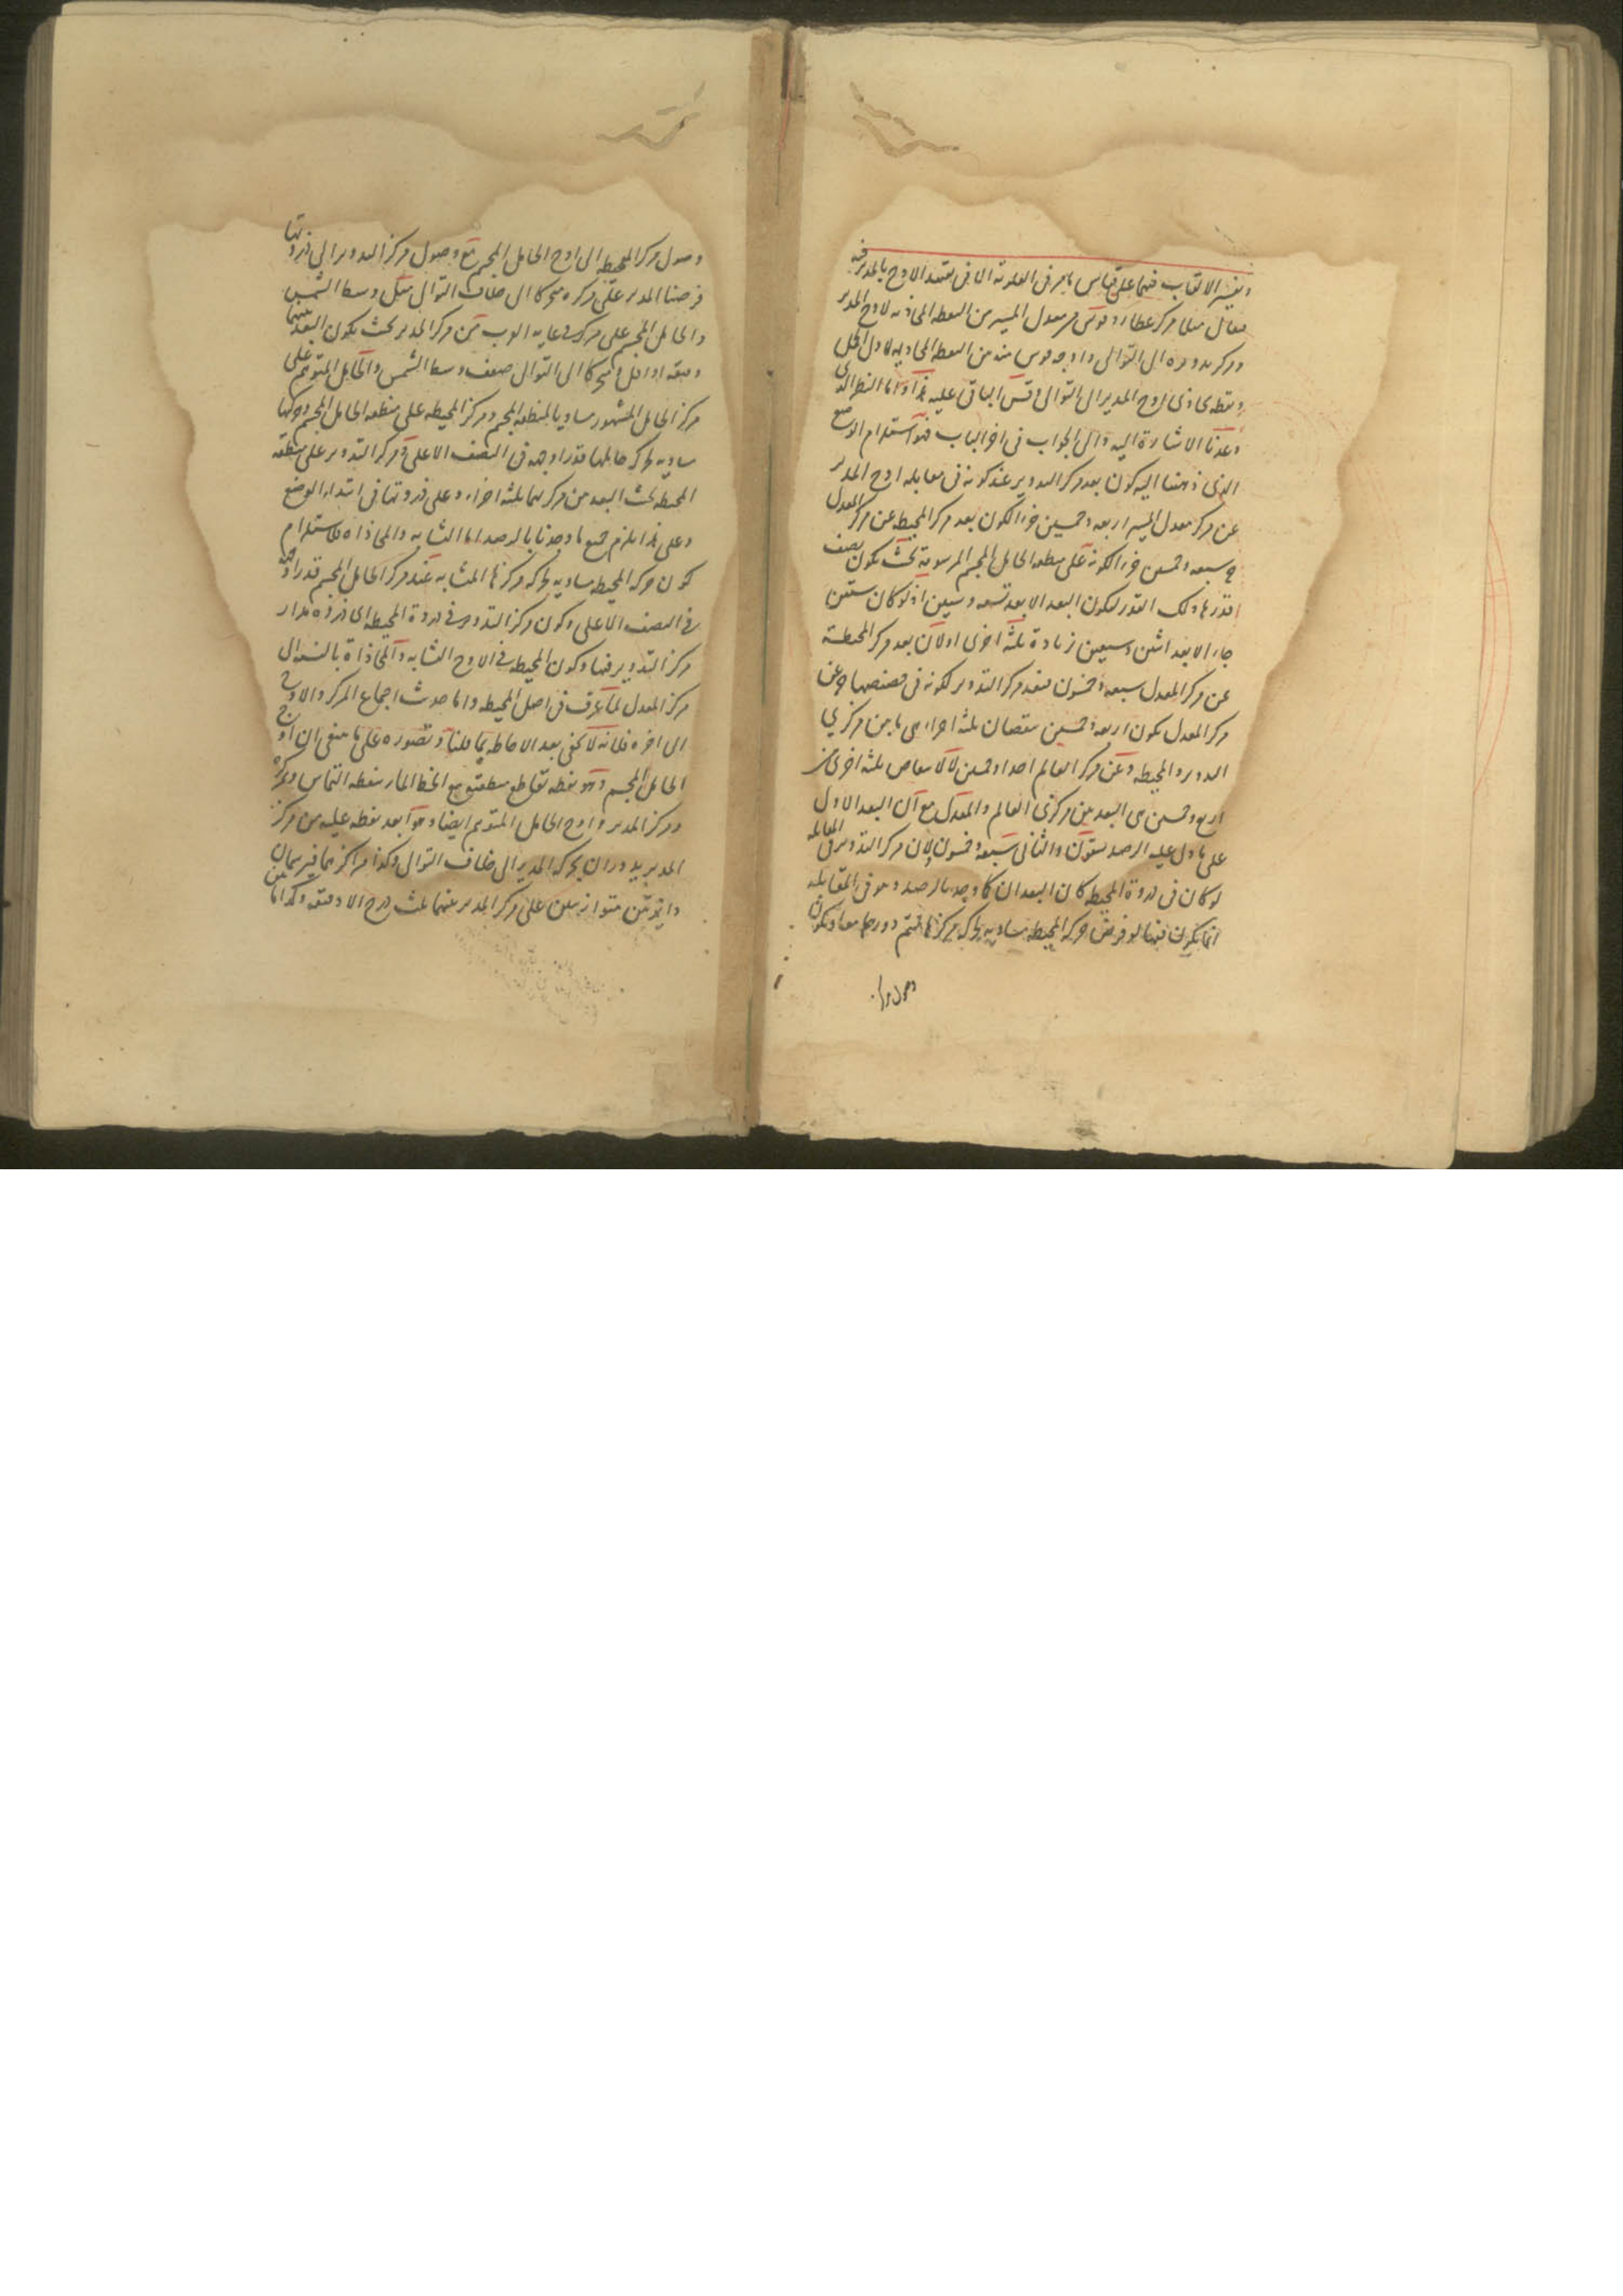 وتفسير الالقاب فيها على قياس ما مر في العلوية الا في تقييد الاوج بالمدير فيه
فيقال مثلا مركز عطارد قوس من معدل المسير من النقطة المحاذية لاوج المدير
ومركز تدويره الى التوالي واوجه قوس منه من النقطة المحاذية لاول الحمل
ونقطة تحاذي اوج المدير الى التوالي وقس الباقي عليه هذا واما النظر الذي
وعدنا الاشارة اليه والى الجواب في اخر الباب فهو استلزام الوضع
الذي ذهبنا اليه كون بعد مركز التدوير عند كونه في مقابلة اوج المدير
عن مركز معدل المسير اربعة وخمسين جزءا لكون بعد مركز المحيطة عن مركز المعدل
ح سبعة وخمسين جزءا لكونه على منطقة الحامل المجسم المرسومة بحيث يكون نصف
قدرها ذلك القدر لكون البعد الابعد تسعة وستين اذ لو كان ستين
جاء الابعد اثنين وسبعين زيادة ثلثة اخرى اولان بعد مركز المحيطة
عن مركز المعدل سبعة وخمسون فبعد مركز التدوير لكونه في حضيضها ح عن
مركز المعدل يكون اربعة وخمسين بنقصان ثلثة اجزاء هي ما بين مركزي
التدوير والمحيطة وعن مركز العالم احدا وخمسين لا لانتقاص ثلثة اخرى من
اربع وخمسين هي البعد بين مركزي العالم والمعدل مع ان البعد الاول
على ما دل عليه الرصد ستون والثاني سبعة وخمسون لان مركز التدوير في المقابلة
لو كان في ذروة المحيطة كان البعدان كما وجد بالرصد وهو في المقابلة
انما يكون فيها لو فرض حركة المحيطة مساوية لحركة مركزها فتتم دورهما معا ويكون
وصول مركز
وصول مركز المحيطة الى اوج الحامل المجسم مع وصول مركز التدوير الى ذروتها
فرضنا المدير على مركزه متحركا الى خلاف التوالي مثل وسط الشمس
والحامل المجسم على مركز في غاية القرب من مركز المدير بحيث يكون البعد بينهما
دقيقة او اقل متحركا الى التوالي ضعف وسط الشمس والحامل المتوهم على
مركز الحامل المشهور مساويا لمنطقة المجسم ومركز المحيطة على منطقة الحامل المجسم وحركتها
مساوية لحركة حاملها قدرا وجهة في النصف الاعلى ومركز التدوير على منطقة
المحيطة بحيث البعد من مركزيهما ثلثة اجزاء وعلى ذروتها في ابتداء الوضع
وعلى هذا يلزم جميع ما وجدنا بالرصد اما التشابه والمحاذاة فلاستلزام
كون حركة المحيطة مساوية لحركة مركزها المتشابه عند مركز الحامل المجسم قدرا وجهة
في النصف الاعلى وكون مركز التدوير في ذروة المحيطة اي ذروة مدار
مركز التدوير فيها وكون المحيطة في الاوج التشابه والمحاذاة بالنسبة الى
مركز المعدل لما عرف في اصل المحيطة واما حديث اجتماع المركز والاوج
الى اخره فلانه لا يخفى بعد الاحاطة بما قلنا وتصوره على ما ينبغي ان اوج
الحامل المجسم وهو نقطة تقاطع منطقته مع الخط المار بنقطة التماس ومركزه
ومركز المدير واوج الحامل المتوهم ايضا وهو ابعد نقطة عليه من مركز
المدير يدوران بحركة المدير الى خلاف التوالي وكذا مراكزهما فيرسمان
دائرتين متوازيتين على مركز المدير بينهما ثلث درج الا دقيقة وكذا ما